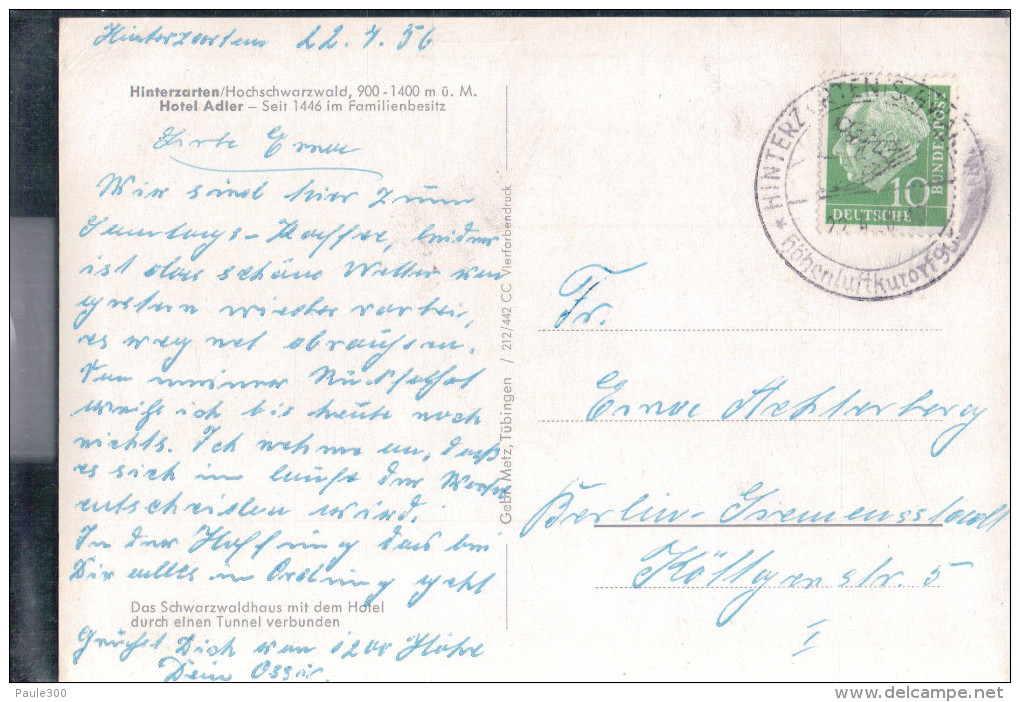 Hinterzarten 22.4.56
Hinterzarten/Hochschwarzwald, 900-1400 m ü. M.
Hotel Adler – Seit 1446 im Familienbesitz
Liebe Erna
Wir sind hier zum
Sonntags-Kaffee, leider
ist das schöne Wetter von
gestern wieder vorbei,
es regnet draußen.
Von meiner Rückfahrt
weiß ich bis heute noch
nichts. Ich nehme an, daß
es sich im laufe der Woche
entscheiden wird.
In der Hoffnung das bei
Dir alles in Ordnung geht
Das Schwarzwaldhaus mit dem Hotel
durch einen Tunnel verbunden
Grüßt Dich von 1200 Höhe
Dein
Gebr. Metz, Tübingen / 212/442 CC Vierfarbendruck
HINTERZARTEN SCHWARZW
Höhenluftkurort
DEUTSCHE
BUNDESPOST
10
Fr.
Erna Achterberg
Berlin-Siemensstadt
Köttgenstr. 5
I
Paule300
delcampe.net